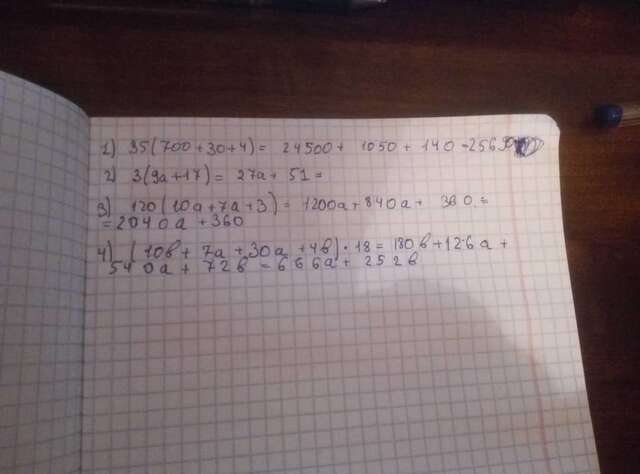 1) 35(700+30+4)= 24500+ 1050 + 140 =25690
2) 3(9a+17)= 27a+ 51=
3) 120(10a+7a+3)= 1200a+840a+ 360=
=2040a +360
4) (10в+ 7a +30a +4в)·18= 180в+126a+
540a+ 72в =666a+ 252в